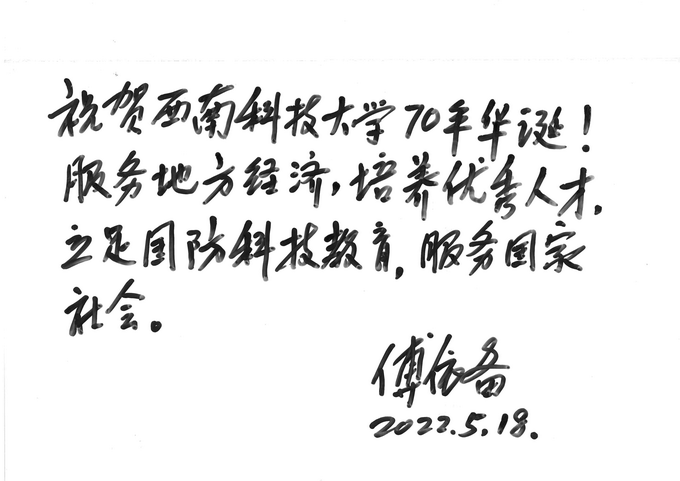 祝贺西南科技大学70年华诞！
服务地方经济，培养优秀人才，
立足国防科技教育，服务国家
社会。
傅依备
2022.5.18.